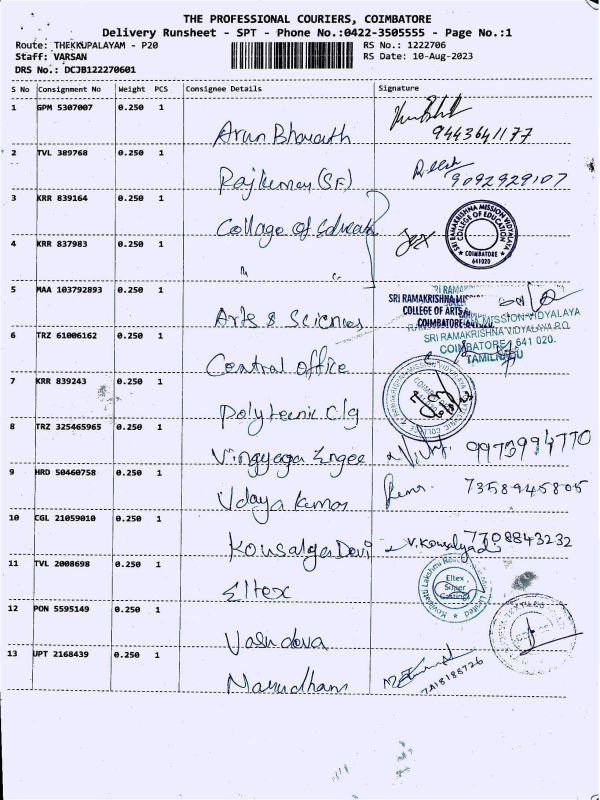 THE PROFESSIONAL COURIERS, COIMBATORE
Delivery Runsheet - SPT - Phone No.:0422-3505555 - Page No.:1
Route: THEKKUPALAYAM - P20 RS No.: 1222706
Staff: VARSAN RS Date: 10-Aug-2023
DRS No.: DCJB122270601
S No Consignment No Weight PCS Consignee Details Signature
1 GPM 5307007 0.250 1
Arun Bharath 9443641177
2 TVL 389768 0.250 1
Rajkumar (SF) 9092929107
3 KRR 839164 0.250 1
College of Education
SRI RAMAKRISHNA MISSION VIDYALAYA
COLLEGE OF EDUCATION
COIMBATORE
641020
4 KRR 837983 0.250 1
" "
5 MAA 103792893 0.250 1
Arts & Sciences
SRI RAMAKRISHNA MISSION
COLLEGE OF ARTS &
COIMBATORE-641020
6 TRZ 61006162 0.250 1
Central office
MISSION VIDYALAYA
SRI RAMAKRISHNA VIDYALAYA P.O.
COIMBATORE - 641 020.
TAMILNADU
7 KRR 839243 0.250 1
Polytecnic Clg
8 TRZ 325465965 0.250 1
9973994770
9 HRD 50460758 0.250 1
Udaya Kumar 7358945805
10 CGL 21059010 0.250 1
Kousalya Devi V. Kousalya 7708843232
11 TVL 2008698 0.250 1
Eltex
Eltex
Super
Castings
Limited
12 PON 5595149 0.250 1
Vasudeva
13 UPT 2168439 0.250 1
Marudham